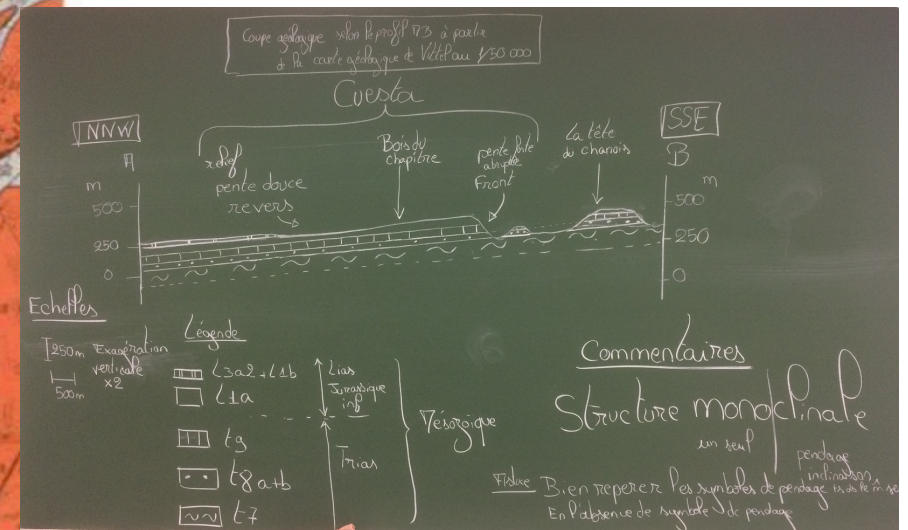 Coupe géologique selon le profil n°3 à partir
de la carte géologique de Vittel au 1/50 000
Cuesta
NNW
SSE
A
B
relief
pente douce
revers
Bois du
chapitre
pente forte
abrupte
Front
La tête
du chanois
m
500
250
0
m
500
250
0
Echelles
250m
500m
Exagération
verticale
x2
Légende
l3a2+l1b
l1a
t9
t8a+b
t7
Lias
Jurassique
inf
Trias
Mésozoïque
Commentaires
Structure monoclinale
un seul
pendage
inclinaison
Bien reperer les symboles de pendage
En l'absence de symbole de pendage